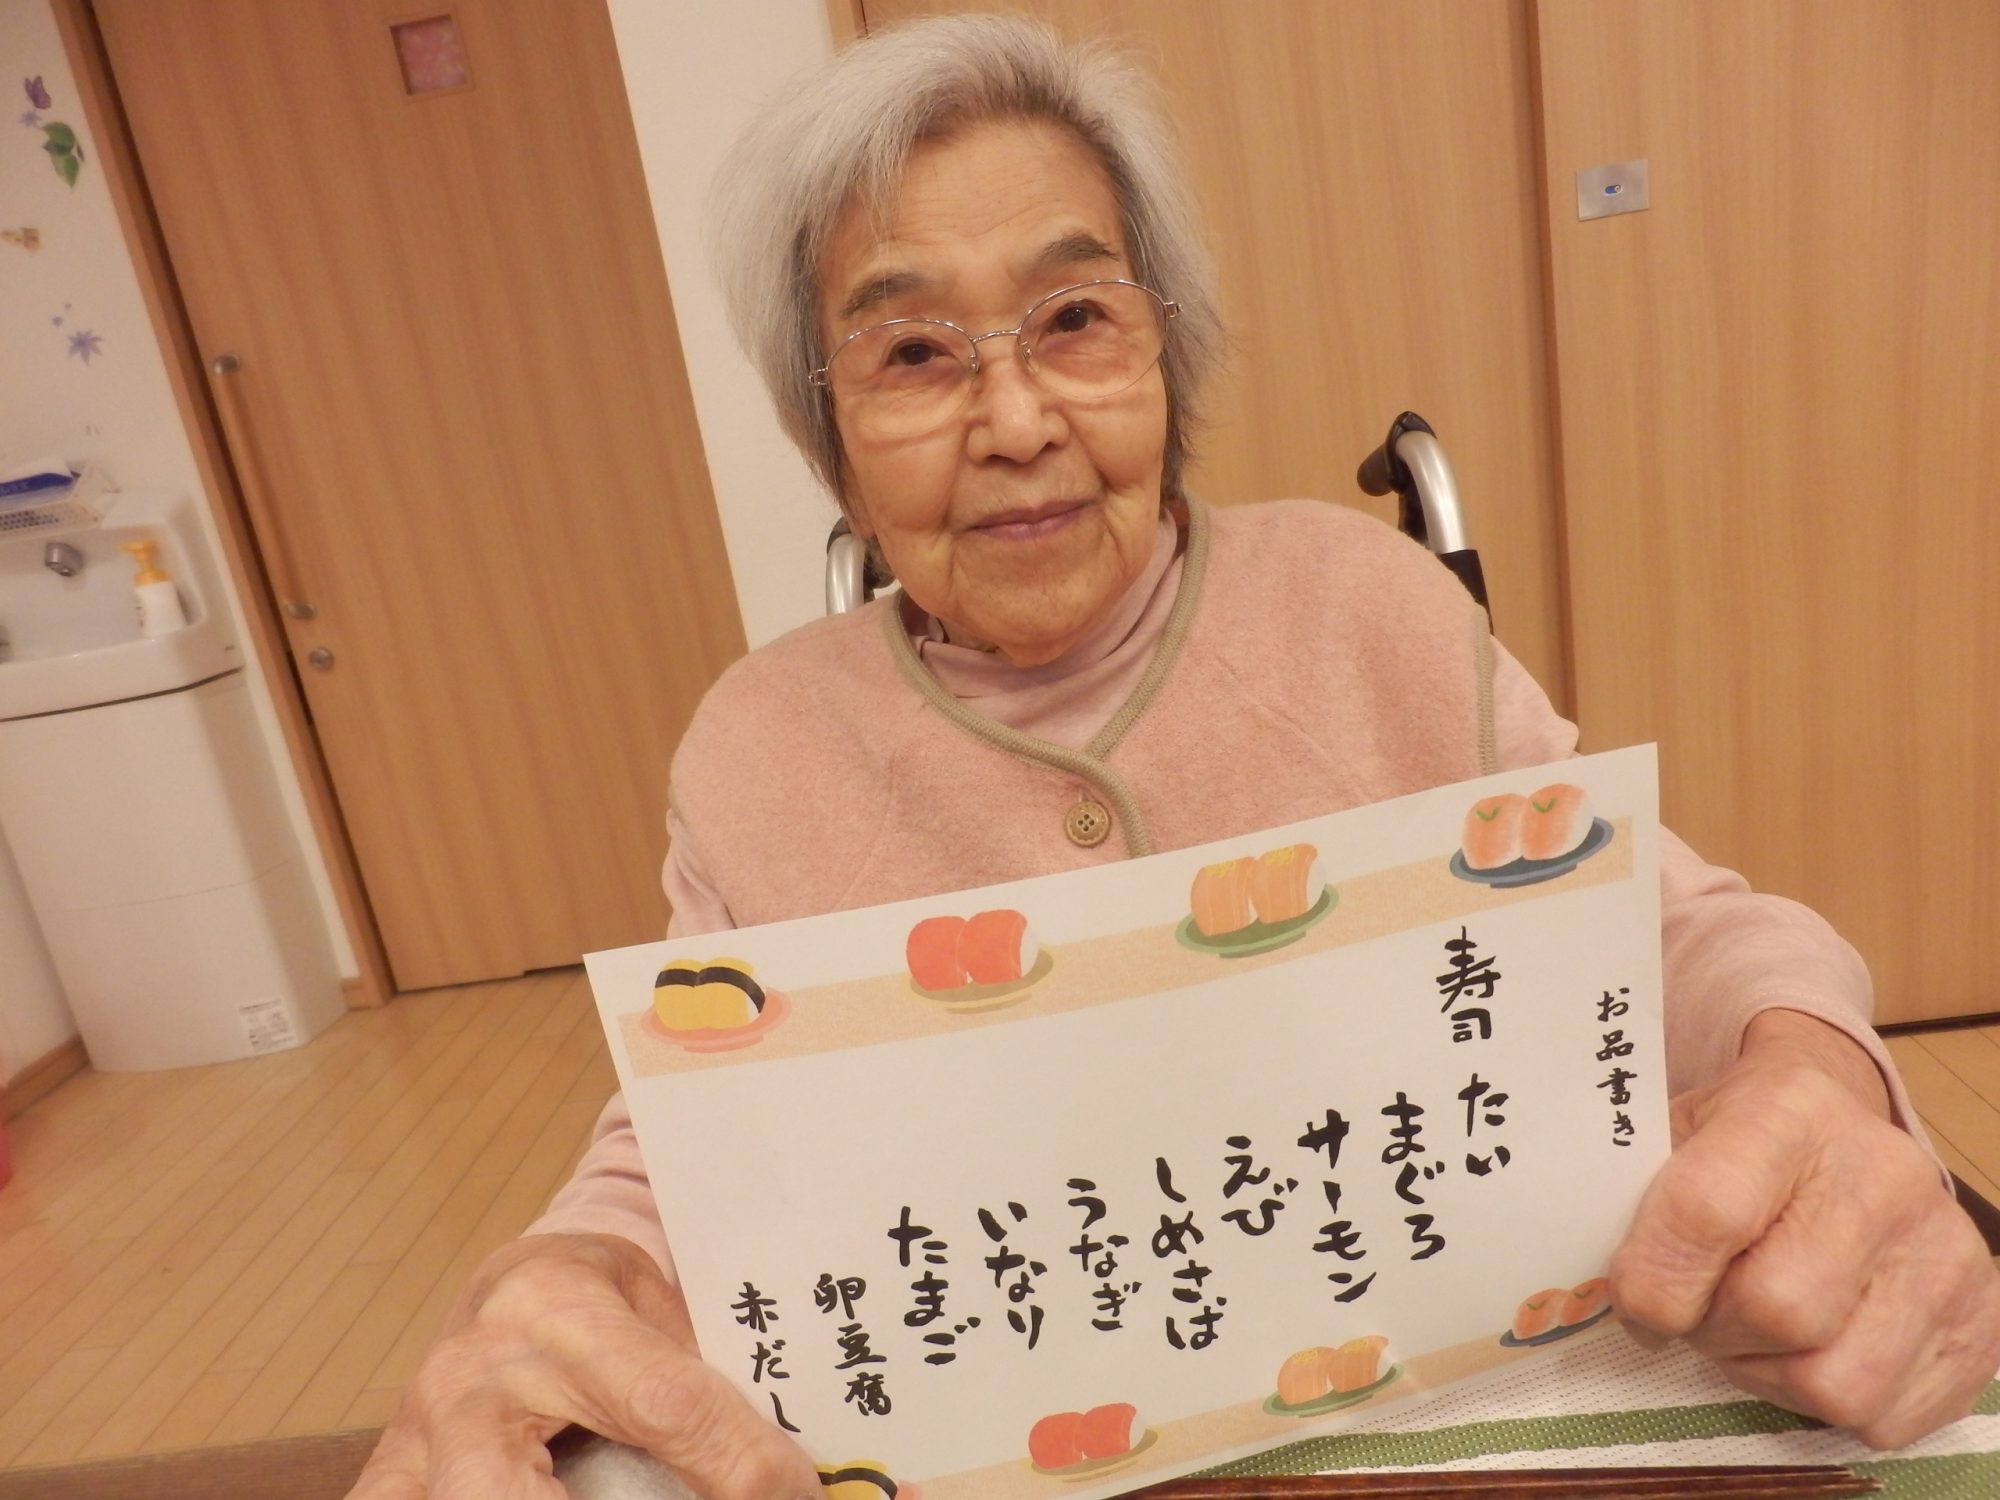 お品書き
寿司 たい
まぐろ
サーモン
えび
しめさば
うなぎ
いなり
たまご
卵豆腐
赤だし